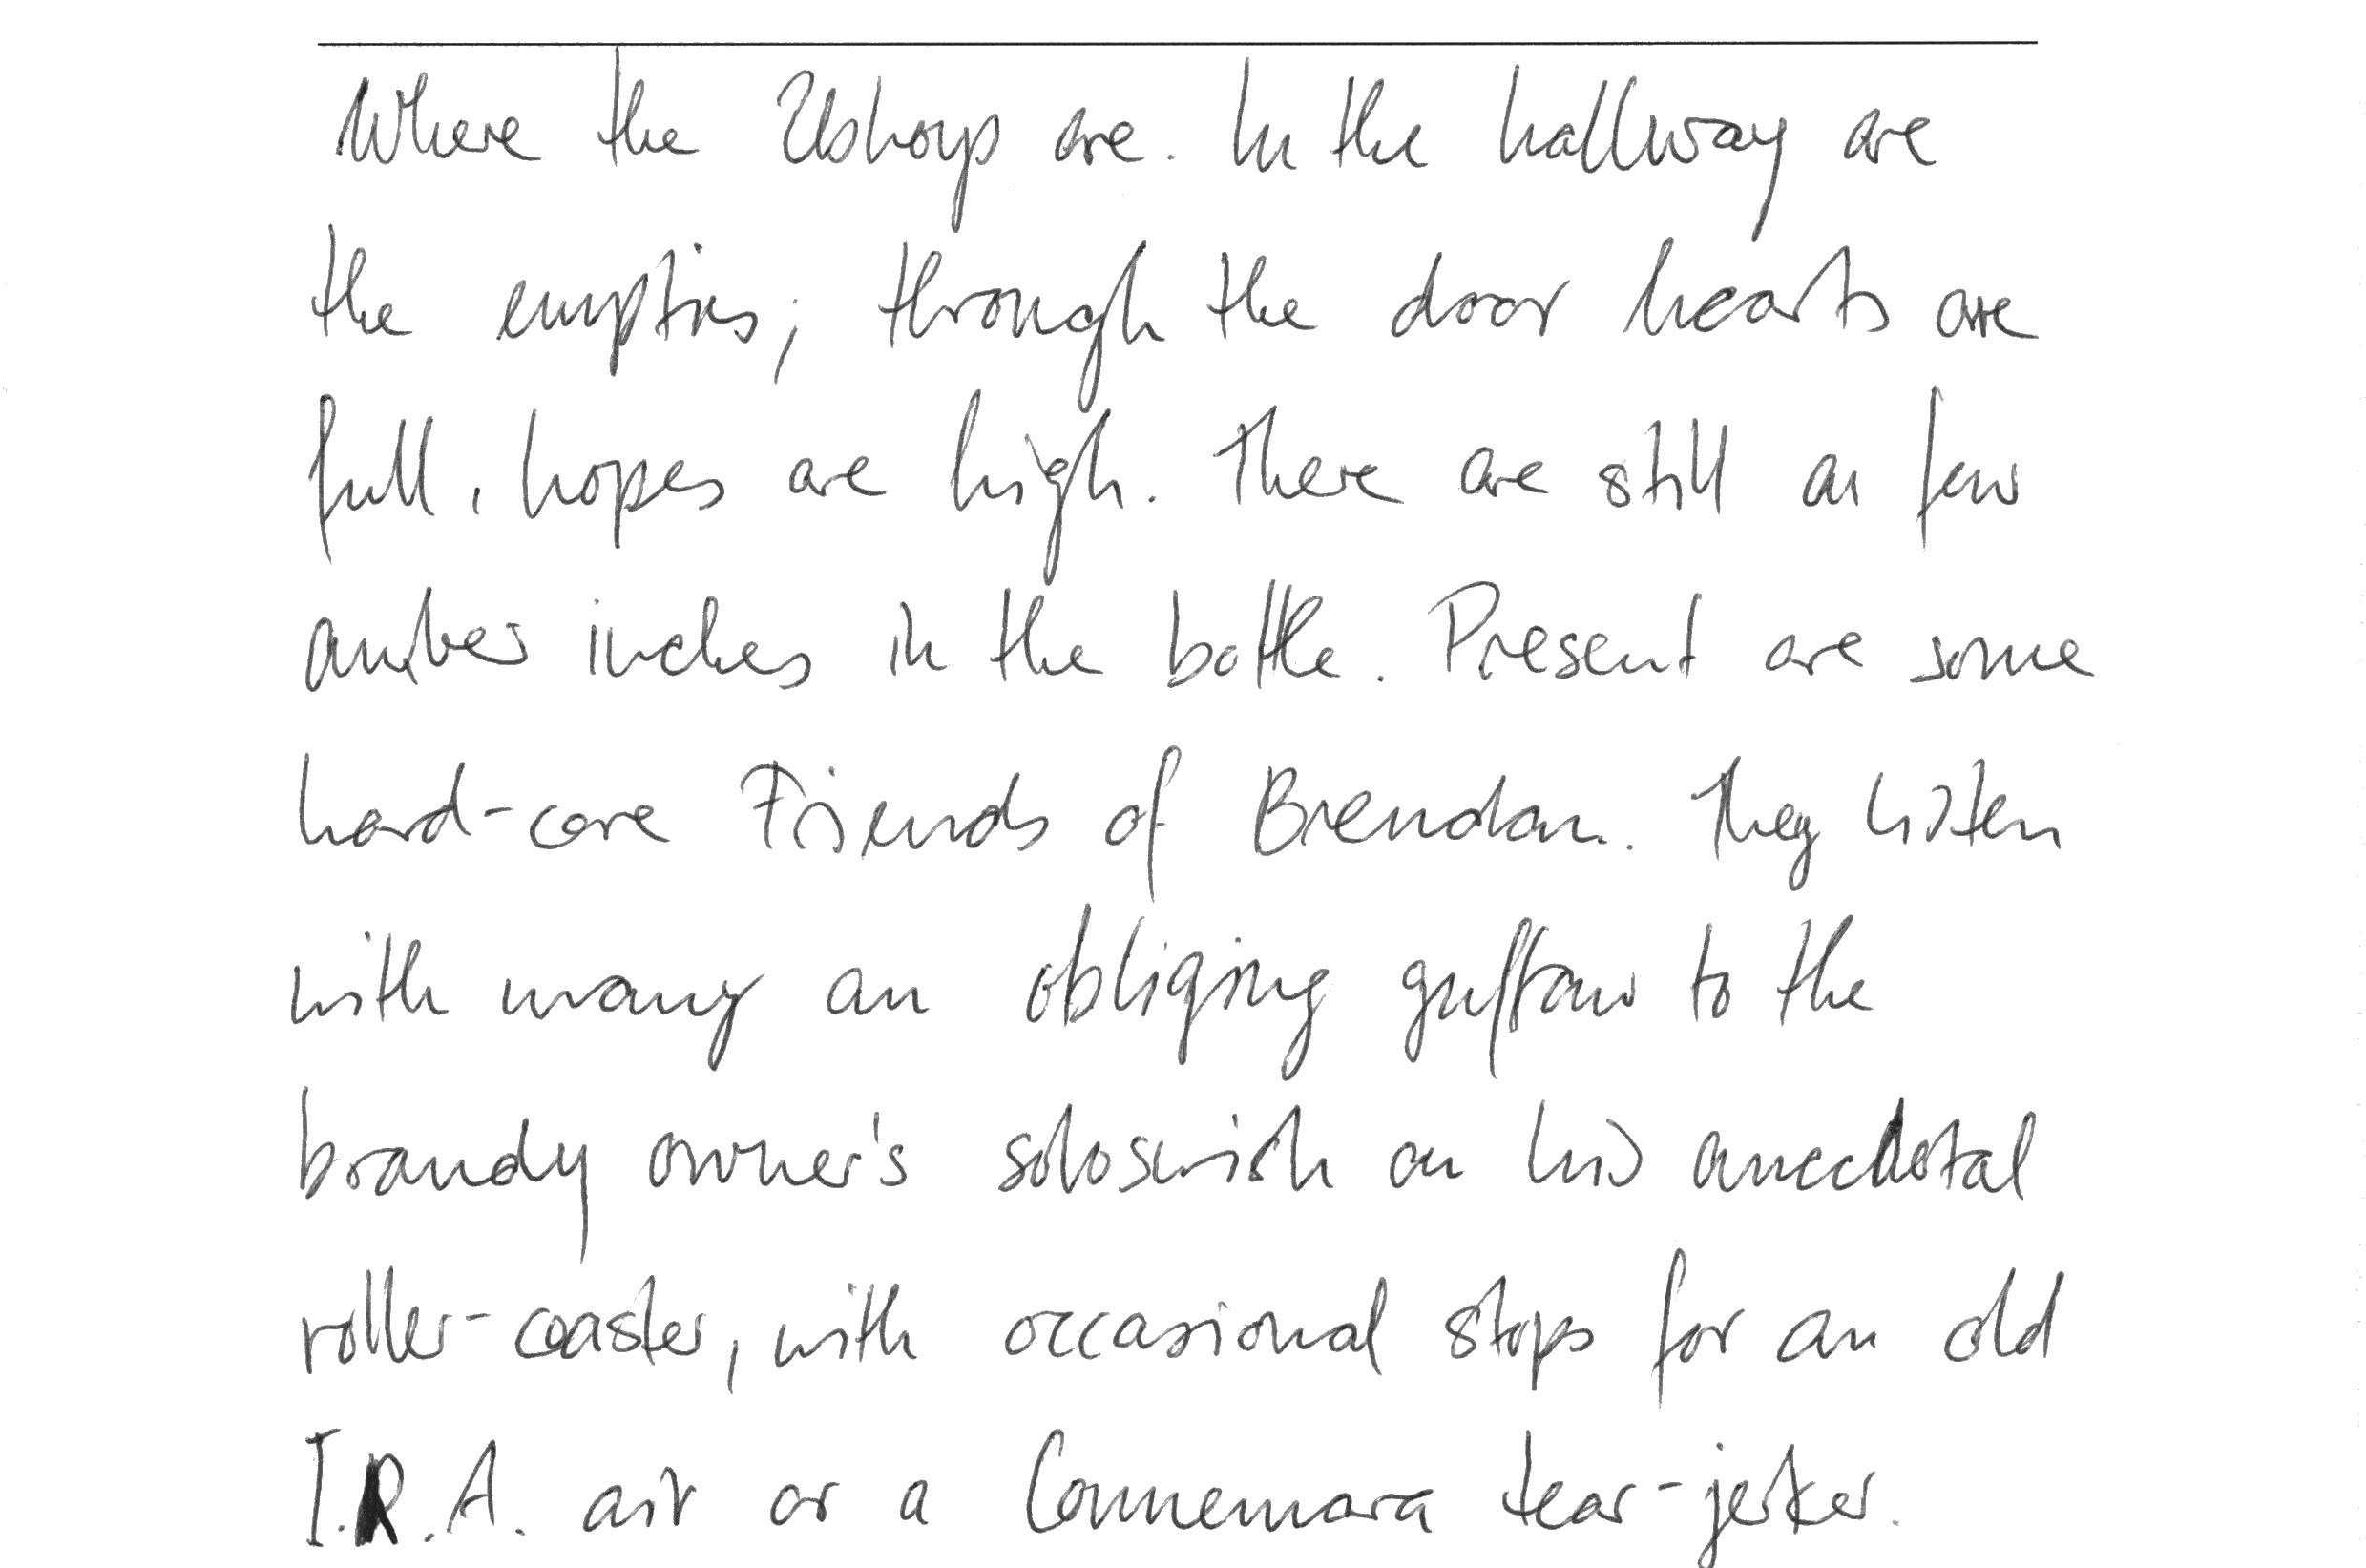 Where the are. In the hallway are
the empties; through the door hearts are
full, hopes are high. There are still a few
amber inches in the bottle. Present are some
hard-core Friends of Brendan. They listen
with many an obliging guffaw to the
brandy owner's soloswish on his anecdotal
roller-coaster, with occasional stops for an old
I.R.A. air or a Connemara tear-jerker.